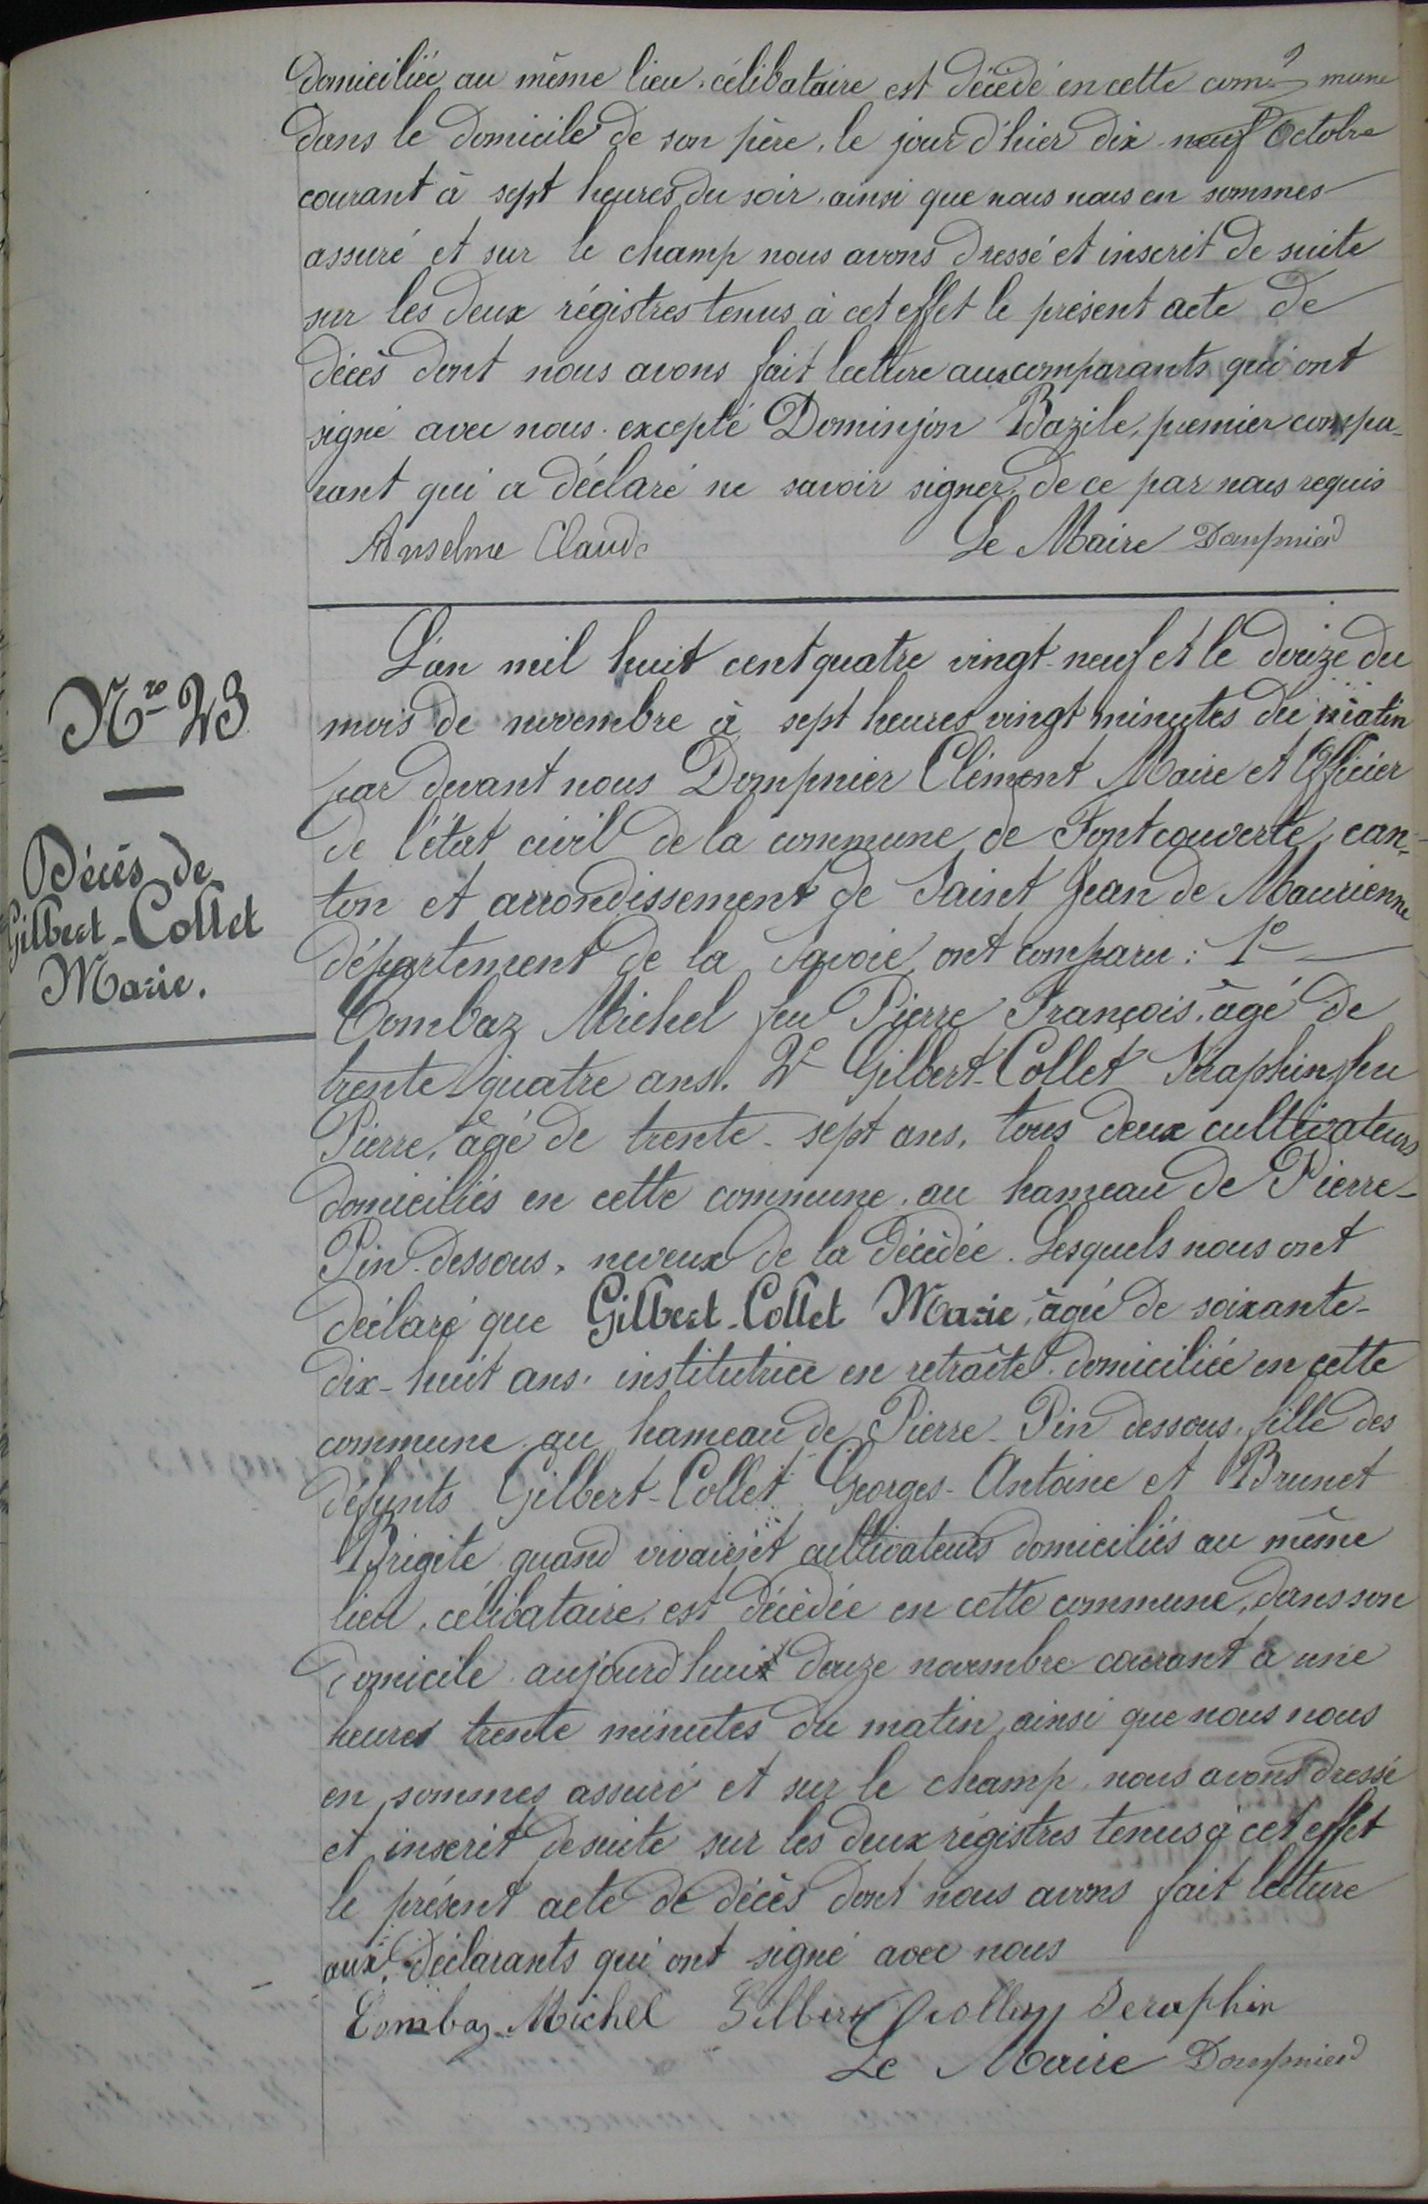 domiciliée au même lieu, célibataire est décédé en cette com- mune
dans le domicile de son père, le jour d'hier dix neuf Octobre
courant à sept heures du soir, ainsi que nous nous en sommes
assuré et sur le champ nous avons dressé et inscrit de suite
sur les deux régistres tenus à cet effet le présent acte de
décès dont nous avons fait lecture aux comparants qui ont
signé avec nous excepté Dominjon Bazile, premier compa-
rant qui a déclaré ne savoir signer de ce par nous requis
Anselme Claude
Le Maire Dompnier
Nro 23
Décès de
Gilbert-Collet
Marie.
L'an mil huit cent quatre vingt-neuf et le douze du
mois de novembre à sept heures vingt minutes du matin
par devant nous Dompnier Clément Maire et Officier
de l'état civil de la commune de Fontcouverte, can-
ton et arrondissement de Saint Jean de Maurienne
département de la Savoie, ont comparu : 1°
Combaz Michel feu Pierre François, âgé de
trente-quatre ans. 2° Gilbert-Collet Séraphin feu
Pierre, âgé de trente-sept ans, tous deux cultivateurs
domiciliés en cette commune, au hameau de Pierre-
Pin-dessous, neveux de la décédée. Lesquels nous ont
déclaré que Gilbert-Collet Marie, âgée de soixante-
dix-huit ans, institutrice en retraite, domiciliée en cette
commune au hameau de Pierre-Pin dessous, fille des
défunts Gilbert-Collet Georges-Antoine et Brunet
Brigite quand vivaient cultivateurs domiciliés au même
lieu, célibataire, est décédée en cette commune, dans son
domicile aujourd'hui douze novembre courant à une
heures trente minutes du matin, ainsi que nous nous
en sommes assuré et sur le champ nous avons dressé
et inscrit de suite sur les deux régistres tenus à cet effet
le présent acte de décès dont nous avons fait lecture
aux déclarants qui ont signé avec nous
Combaz Michel Gilbert Collet Seraphin
Le Maire Dompnier